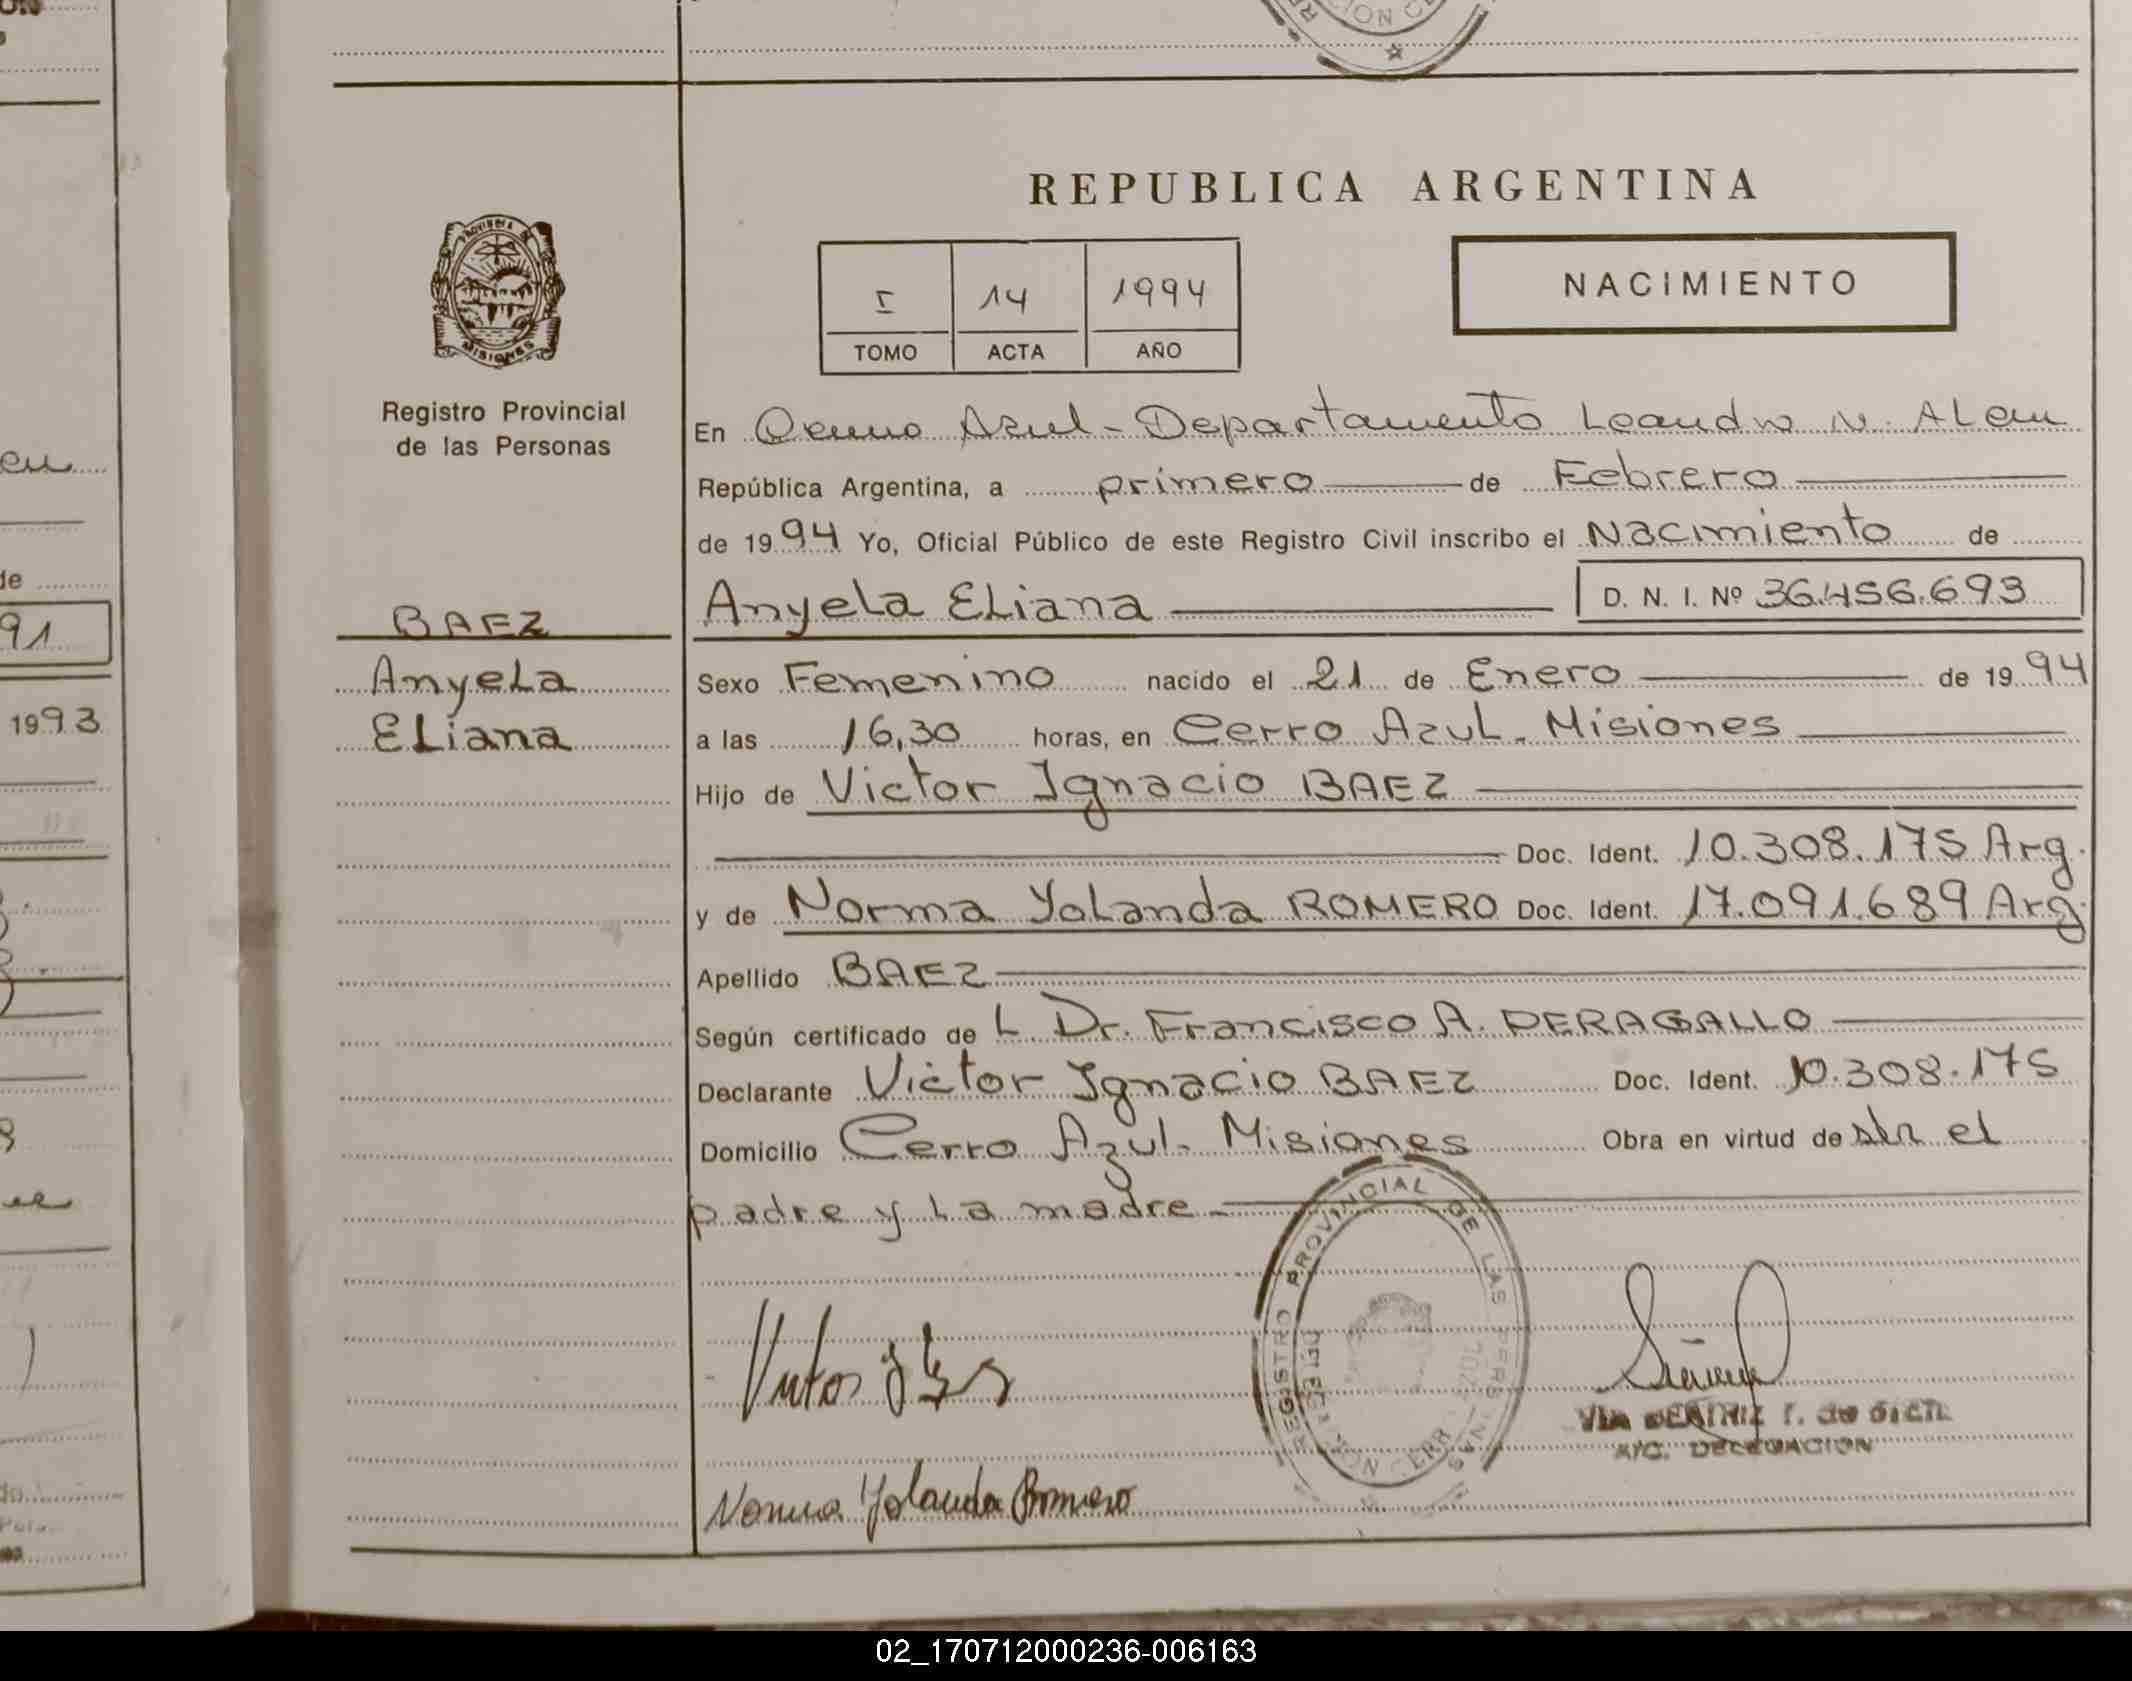 REPUBLICA ARGENTINA
I 14 1994
TOMO ACTA AÑO
NACIMIENTO
MISIONES
Registro Provincial
de las Personas
BAEZ
Anyela
Eliana
En Cerro Azul - Departamento Leandro N. Alem
República Argentina, a primero de Febrero
de 1994 Yo, Oficial Público de este Registro Civil inscribo el Nacimiento de
Anyela Eliana D. N. I. Nº 36.456.693
Sexo Femenino nacido el 21 de Enero de 1994
a las 16,30 horas, en Cerro Azul - Misiones
Hijo de Victor Ignacio BAEZ
Doc. Ident. 10.308.175 Arg.
y de Norma Yolanda ROMERO Doc. Ident. 17.091.689 Arg.
Apellido BAEZ
Según certificado de L Dr. Francisco A. PERAGALLO
Declarante Victor Ignacio BAEZ Doc. Ident. 10.308.175
Domicilio Cerro Azul - Misiones Obra en virtud de ser el
padre y la madre
REGISTRO PROVINCIAL DE LAS PERSONAS
A/C. DELEGACION
Norma Yolanda Romero
1993
02_170712000236-006163